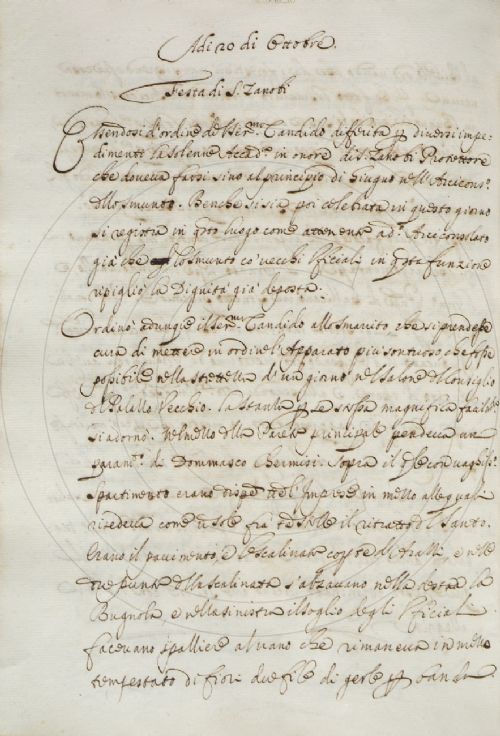 Adi 20 di Ottobre.
Festa di S. Zanobi
Essendosi d'ordine del Ser.mo Candido differita p diversi impe=
dimenti la solenne Accad.a in onore di S. Zanobi Protettore
che doveva farsi sino al principio di Giugno nell'Arcicons.o
dello Smunto. Benche si sia poi celebrata in questo giorno
si registra in qto luogo come attenente ad.o Arciconsolato
già che lo Smunto co' vecchi Ufficiali in qta funzione
ripigliò la Dignita già deposta.
Ordinò adunque il Ser.mo Candido allo Smarrito che si prendesse
cura di mettere in ordine l'Apparato più sontuoso che fosse
possibile nella strettezza d'un giorno nel Salone del Consiglio
di Palazzo Vecchio. La stanza p se stessa magnifica
si adornò. Nel mezzo della Parete principale pendeva un
di Dommasco Chermisi. Sopra il
spartimento erano l'Imprese in mezzo alle quali
risedeva come il Sole fra le Stelle il ritratto del Santo.
Erano il pavimento, e le scalinate coperte di Arazzi, e nelle
due punte della scalinata s'alzavano nella destra la
Bugnola, e nella sinistra il soglio degli Ufficiali
facevano spalliere al vano che rimaneva in mezzo
tempestato di fiori due file di gerle p banda